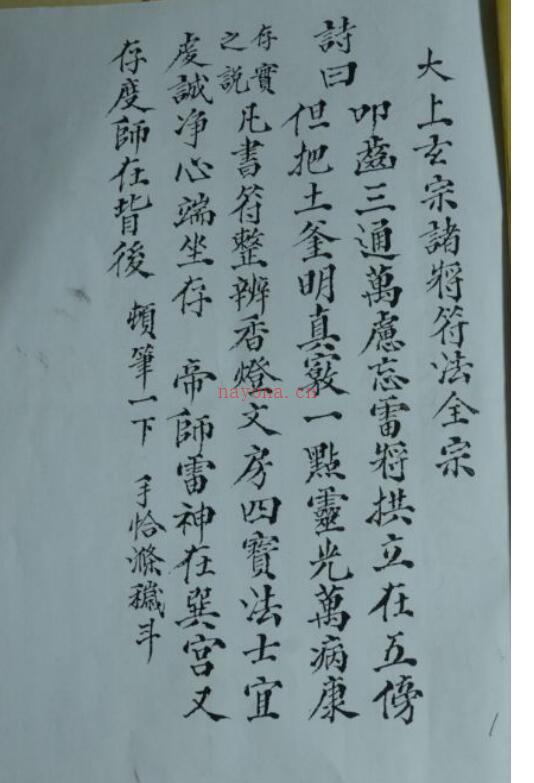 大上玄宗諸將符法全宗
詩曰
叩齒三通萬慮忘雷將拱立在五傍
但把土釜明真竅一點靈光萬病康
存實之說
凡書符整辦香燈文房四寶法士宜
虔誠净心端坐存 帝師雷神在巽宮又
存度師在背後 頓筆一下 手恰滌穢斗
nayona.cn
1